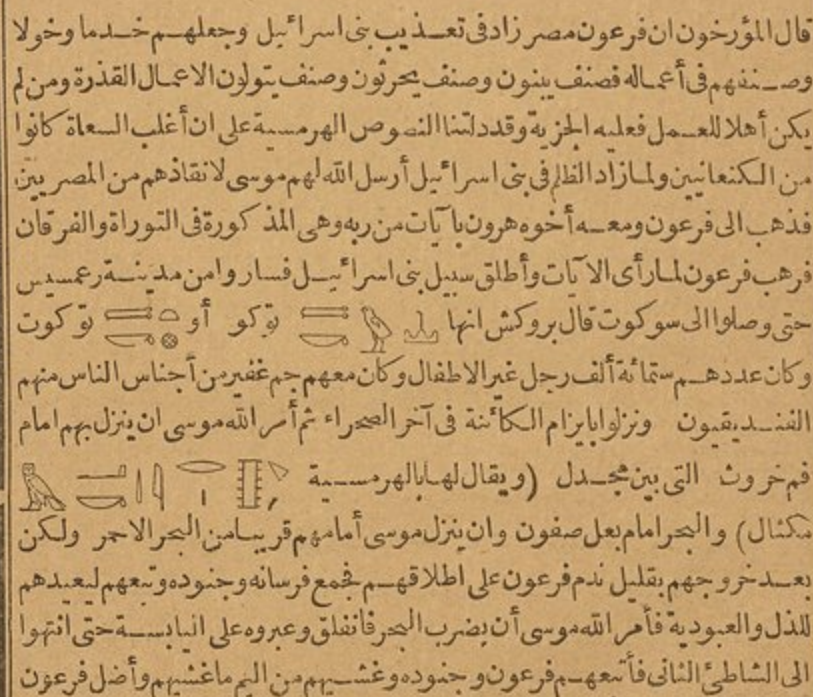 قال المؤرخون ان فرعون مصر زاد فى تعذيب بنى اسرائيل وجعلهم خدما وخولا
وصنفهم فى أعماله فصنف يبنون وصنف يحرثون وصنف يتولون الاعمال القذرة ومن لم
يكن أهلا للعمل فعليه الجزية وقد دلتنا النصوص الهرمسية على ان أغلب السعاة كانوا
من الكنعانيين ولما زاد الظلم فى بنى اسرائيل أرسل الله لهم موسى لانقاذهم من المصريين
فذهب الى فرعون ومعه أخوه هرون بآيات من ربه وهى المذكورة فى التوراة والفرقان
فرهب فرعون لما رأى الآيات وأطلق سبيل بنى اسرائيل فساروا من مدينة رعمسيس
حتى وصلوا الى سوكوت قال بروكش انها توكو أو توكوت
وكان عددهم ستمائة ألف رجل غير الاطفال وكان معهم جم غفير من أجناس الناس منهم
الفنديقيون ونزلوا بايزام الكائنة فى آخر الصحراء ثم أمر الله موسى ان ينزل بهم امام
فم خروث التى بين مجدل (ويقال لها بالهرمسية
مكتال) والبحر امام بعل صفون وان ينزل موسى أمامهم قريبا من البحر الاحمر ولكن
بعد خروجهم بقليل ندم فرعون على اطلاقهم فجمع فرسانه وجنوده وتبعهم ليعيدهم
للذل والعبودية فأمر الله موسى أن يضرب البحر فانفلق وعبروه على اليابسة حتى انتهوا
الى الشاطئ الثانى فأتبعهم فرعون وجنوده وغشيهم من اليم ما غشيهم وأضل فرعون